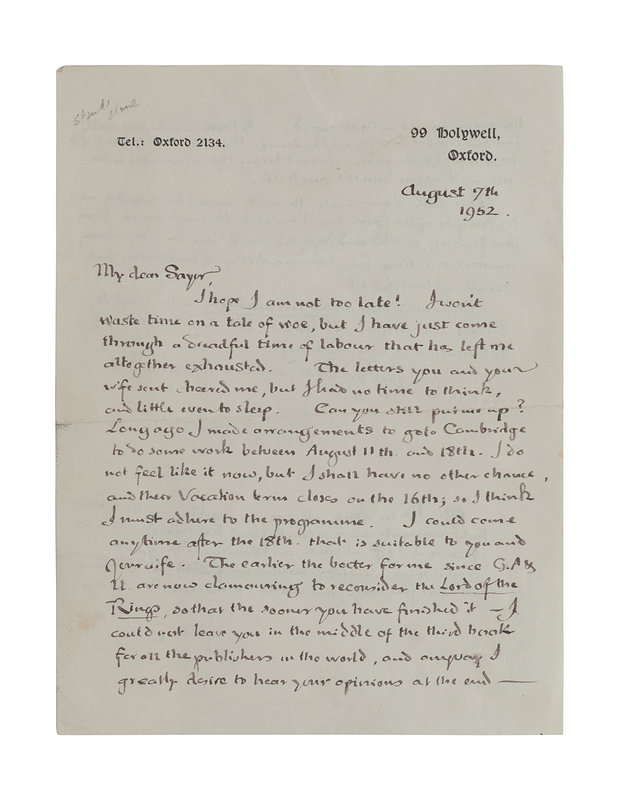 Tel.: Oxford 2134.
99 Holywell,
Oxford.
August 7th
1952.
My dear Sayer,
I hope I am not too late! I won't
waste time on a tale of woe, but I have just come
through a dreadful time of labour that has left me
altogether exhausted. The letters you and your
wife sent cheered me, but I had no time to think,
and little even to sleep. Can you still put me up?
Long ago I made arrangements to go to Cambridge
to do some work between August 11th and 18th. I do
not feel like it now, but I shall have no other chance,
and their Vacation term closes on the 16th; so I think
I must adhere to the programme. I could come
anytime after the 18th. that is suitable to you and
your wife. The earlier the better for me since G.A &
U. are now clamouring to reconsider the Lord of the
Rings, so that the sooner you have finished it — I
could not leave you in the middle of the third book
for all the publishers in the world, and anyway I
greatly desire to hear your opinions at the end —